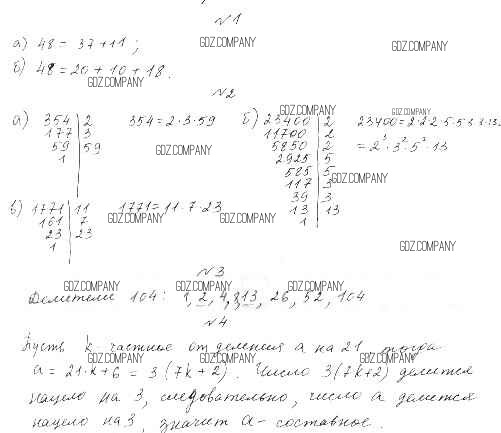 №1
а) 48 = 37 + 11 ;
GDZ.COMPANY
GDZ.COMPANY
б) 48 = 20 + 10 + 18.
GDZ.COMPANY
№2
а) 354 | 2
177 | 3
59 | 59
1
354 = 2·3·59
GDZ.COMPANY
б) 23400 | 2
11700 | 2
5850 | 2
2925 | 5
585 | 5
117 | 3
39 | 3
13 | 13
1
GDZ.COMPANY
GDZ.COMPANY
23400 = 2·2·2·5·5·3·3·13
= 2³·3²·5²·13
GDZ.COMPANY
в) 1771 | 11
161 | 7
23 | 23
1
1771 = 11·7·23
GDZ.COMPANY
GDZ.COMPANY
GDZ.COMPANY
№3
GDZ.COMPANY
GDZ.COMPANY
GDZ.COMPANY
Делители 104: 1, 2, 4, 8, 13, 26, 52, 104
№4
Пусть k частное от деления a на 21 тогда
GDZ.COMPANY
GDZ.COMPANY
GDZ.COMPANY
a = 21·k + 6 = 3(7k + 2). Число 3(7k+2) делится
нацело на 3, следовательно, число a делится
нацело на 3, значит a – составное.